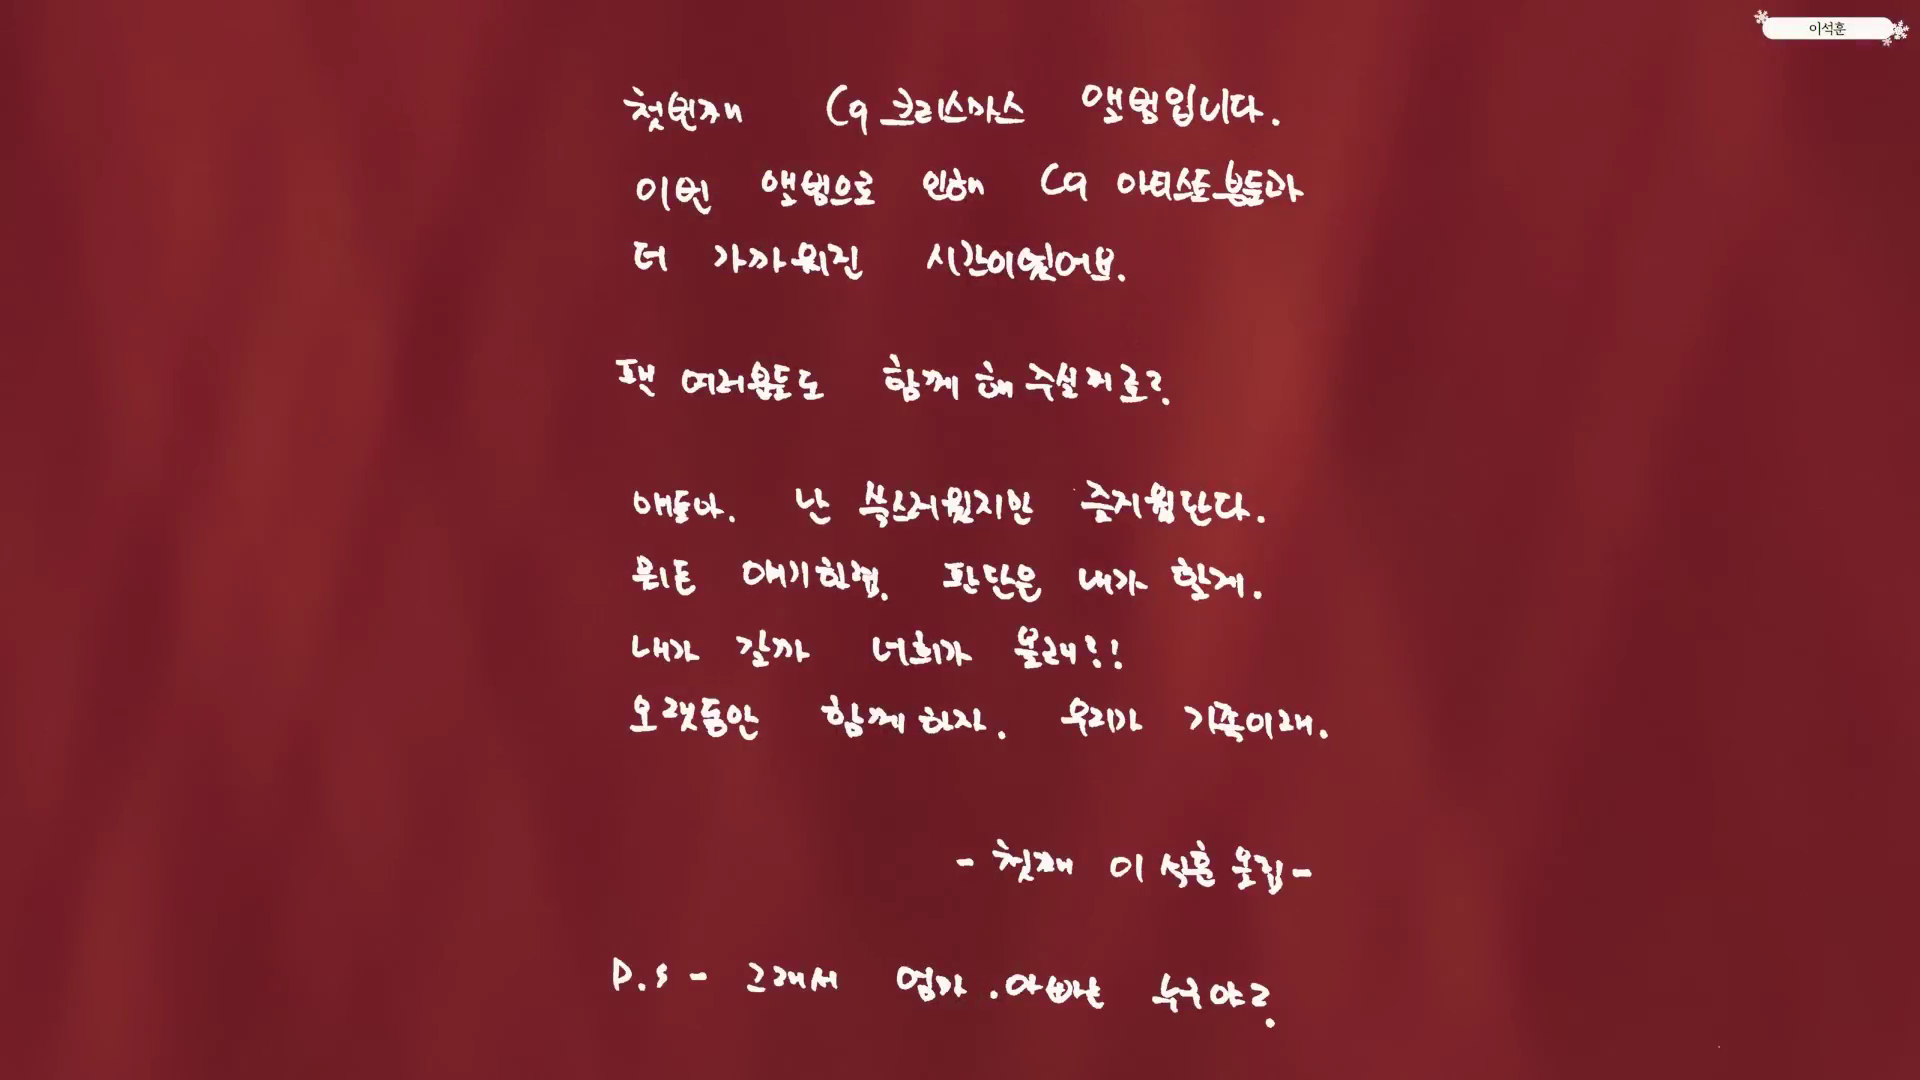 이석훈
첫번째 C9 크리스마스 앨범입니다.
이번 앨범으로 인해 C9 아티스트분들과
더 가까워진 시간이었어요.
팬 여러분들도 함께 해 주실꺼죠?
얘들아. 난 쑥스러웠지만 즐거웠단다.
뭐든 얘기하렴. 판단은 내가 할게.
내가 갈까 너희가 올래?!
오랫동안 함께하자. 우리가 가족이래.
- 첫째 이석훈 올림 -
P.S - 그래서 엄마.아빠는 누구야?